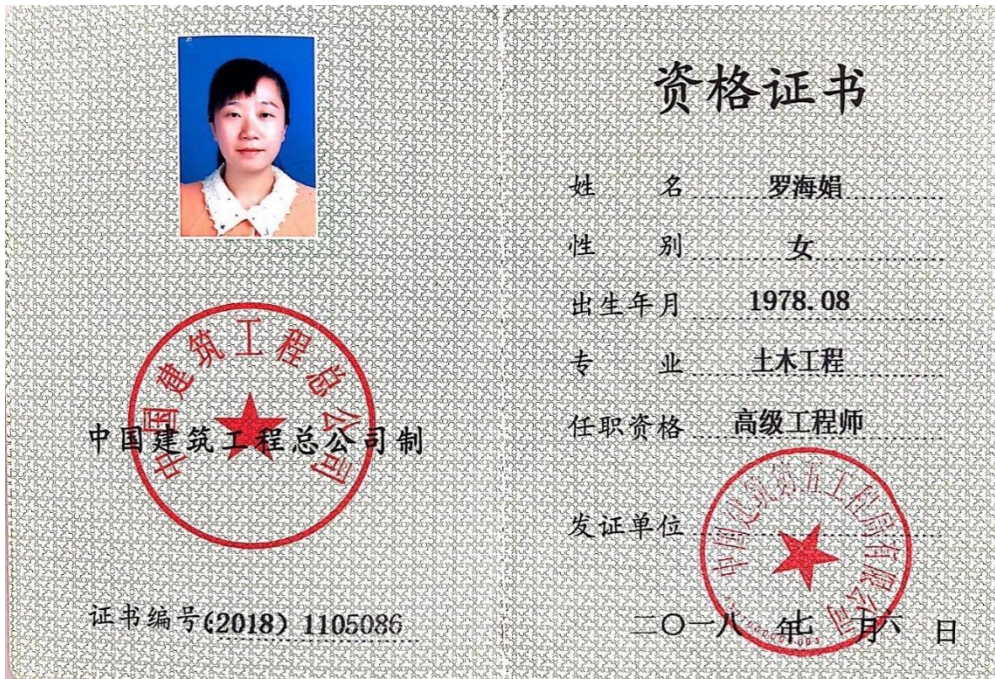 中国建筑工程总公司
中国建筑工程总公司制
证书编号:(2018) 1105086
资格证书
姓 名 罗海娟
性 别 女
出生年月 1978.08
专 业 土木工程
任职资格 高级工程师
发证单位
中国建筑第五工程局有限公司
二〇一八 年 七 月 六 日